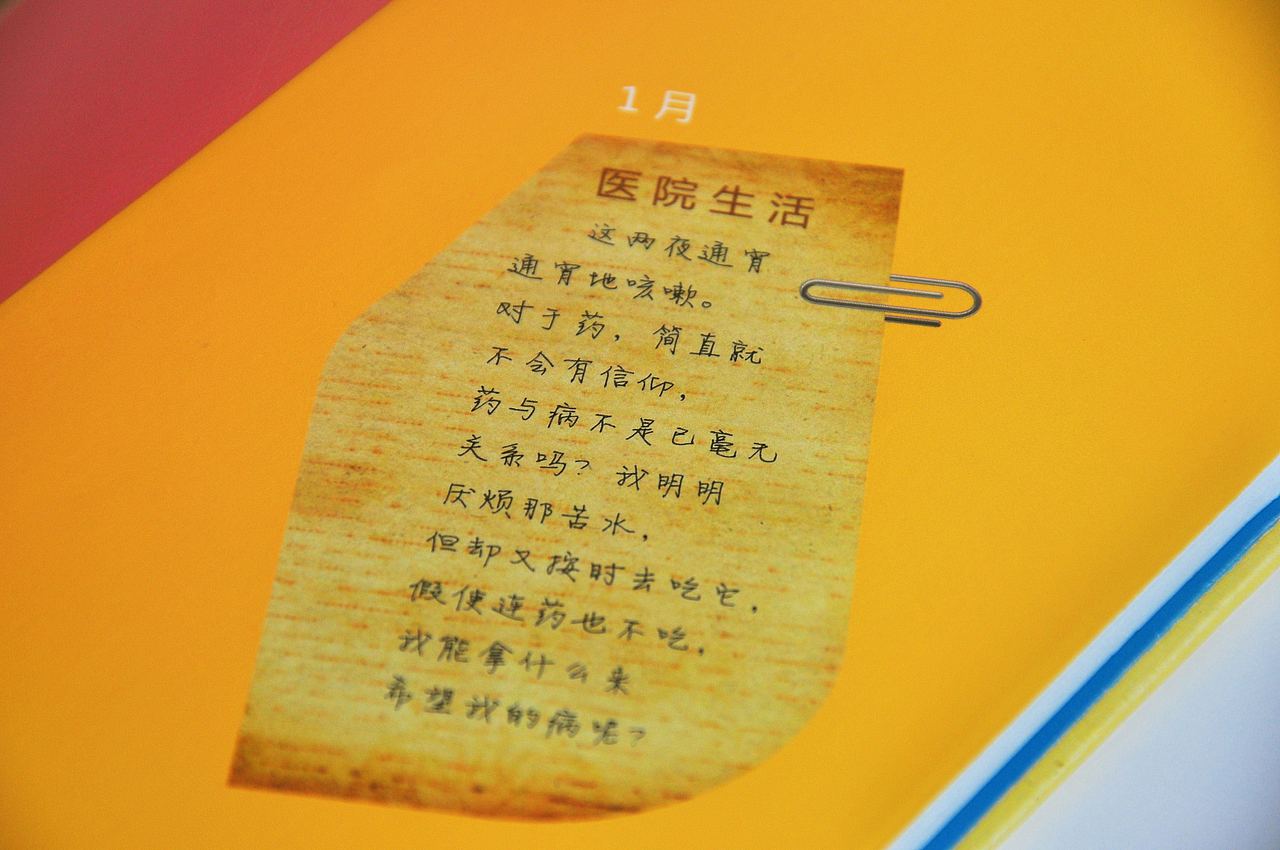 1月
医院生活
这两夜通宵
通宵地咳嗽。
对于药，简直就
不会有信仰，
药与病不是已毫无
关系吗？我明明
厌烦那苦水，
但却又按时去吃它，
假使连药也不吃，
我能拿什么来
希望我的病呢？